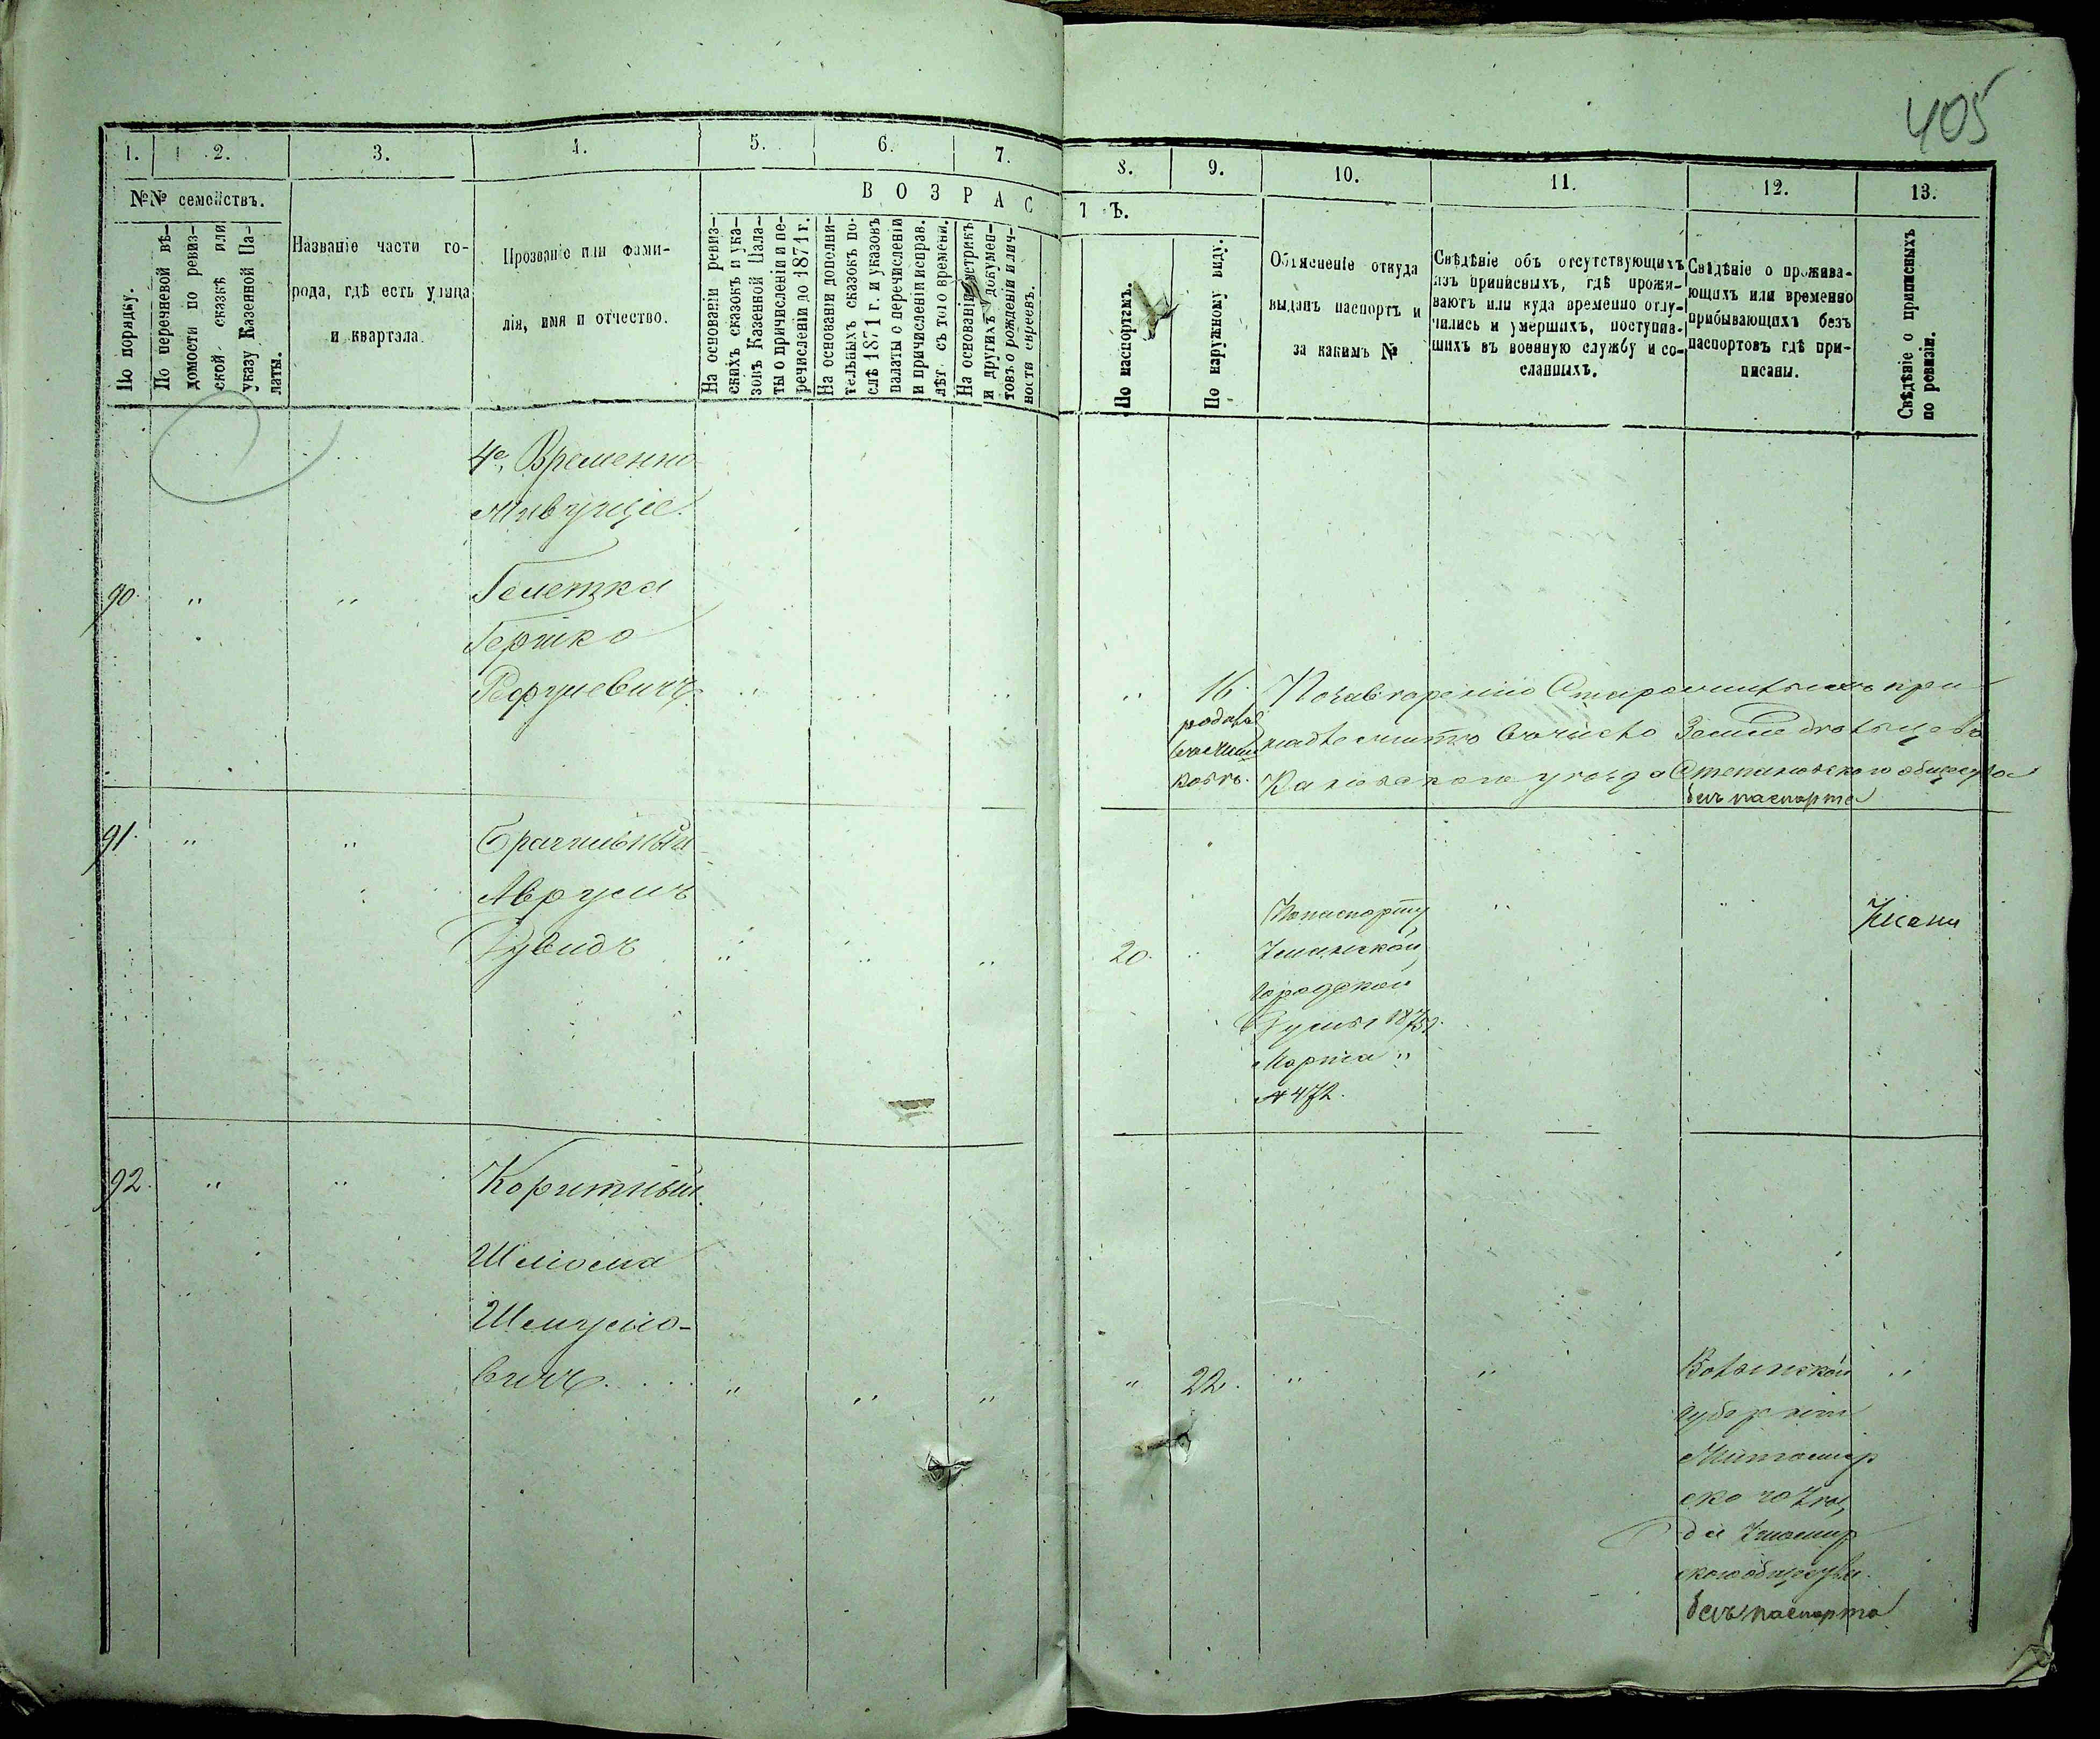 405
1.
2.
3.
4.
5.
6.
7.
8.
9.
10.
11.
12.
13.
№№ семействъ.
По порядку.
По перечневой вѣ-
домости по ревиз-
ской сказкѣ или
указу Казенной Па-
латы.
Названіе части го-
рода, гдѣ есть улица
и квартала.
Прозваніе или фами-
лія, имя и отчество.
ВОЗРАС
ТЪ.
На основаніи ревиз-
скихъ сказокъ и ука-
зовъ Казенной Пала-
ты о причисленіи и пе-
речисленіи до 1871 г.
На основаніи дополни-
тельныхъ сказокъ по-
слѣ 1871 г. и указовъ
палаты о перечисленіи
и причисленіи исправ.
лѣт. съ того времени.
На основаніи метрикъ
и другихъ докумен-
товъ о рожденіи и лич-
ности евреевъ.
По паспортамъ.
По наружному виду.
Объясненіе откуда
выданъ паспортъ и
за какимъ №
Свѣдѣніе объ отсутствующихъ
изъ приписныхъ, гдѣ прожи-
ваютъ или куда временно отлу-
чились и умершихъ, поступив-
шихъ въ военную службу и со-
сланныхъ.
Свѣдѣніе о прожива-
ющихъ или временно
прибывающихъ безъ
паспортовъ гдѣ при-
писаны.
Свѣдѣніе о приписныхъ
по ревизіи.
4е, Временно
живущіе
90. " "
Гершко
" " " " 16.
Земледѣльцевъ
Каневскаго уѣзда Степановскаго общества
безъ паспорта
91. " "
Аврумъ
Дувидъ " " " 20. "
По паспорту " "
Уманской
Городской
Думы 1875 г.
Марта "
№ 472.
92. " "
Коритный
Шлиома
Шмуліо-
вичъ " " " " 22. " " "
Волынской
губерніи
Житомир
ско го Уѣз
да
безъ паспорта